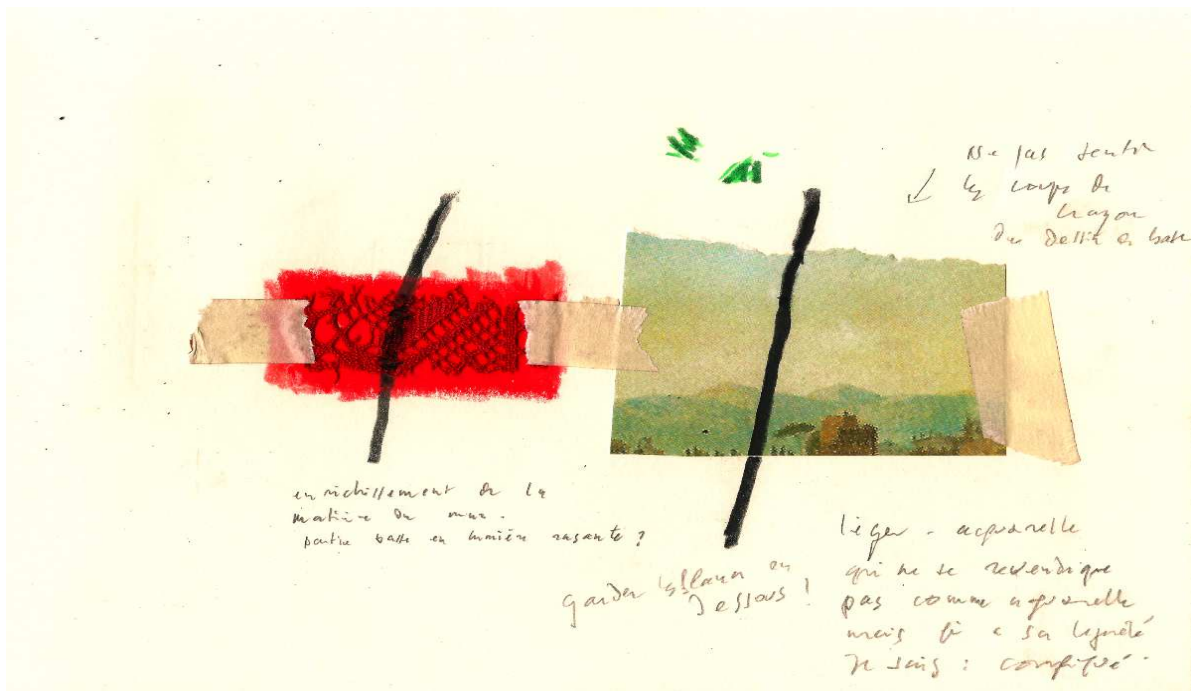 Ne pas sentir
les coups de
crayon
du dessin en base
enrichissement de la
matière du mur.
partie basse en lumière rasante ?
garder les blancs en
dessous !
léger - acquarelle
qui ne se revendique
pas comme aquarelle
mais qui a sa légèreté
Je sais : compliqué.